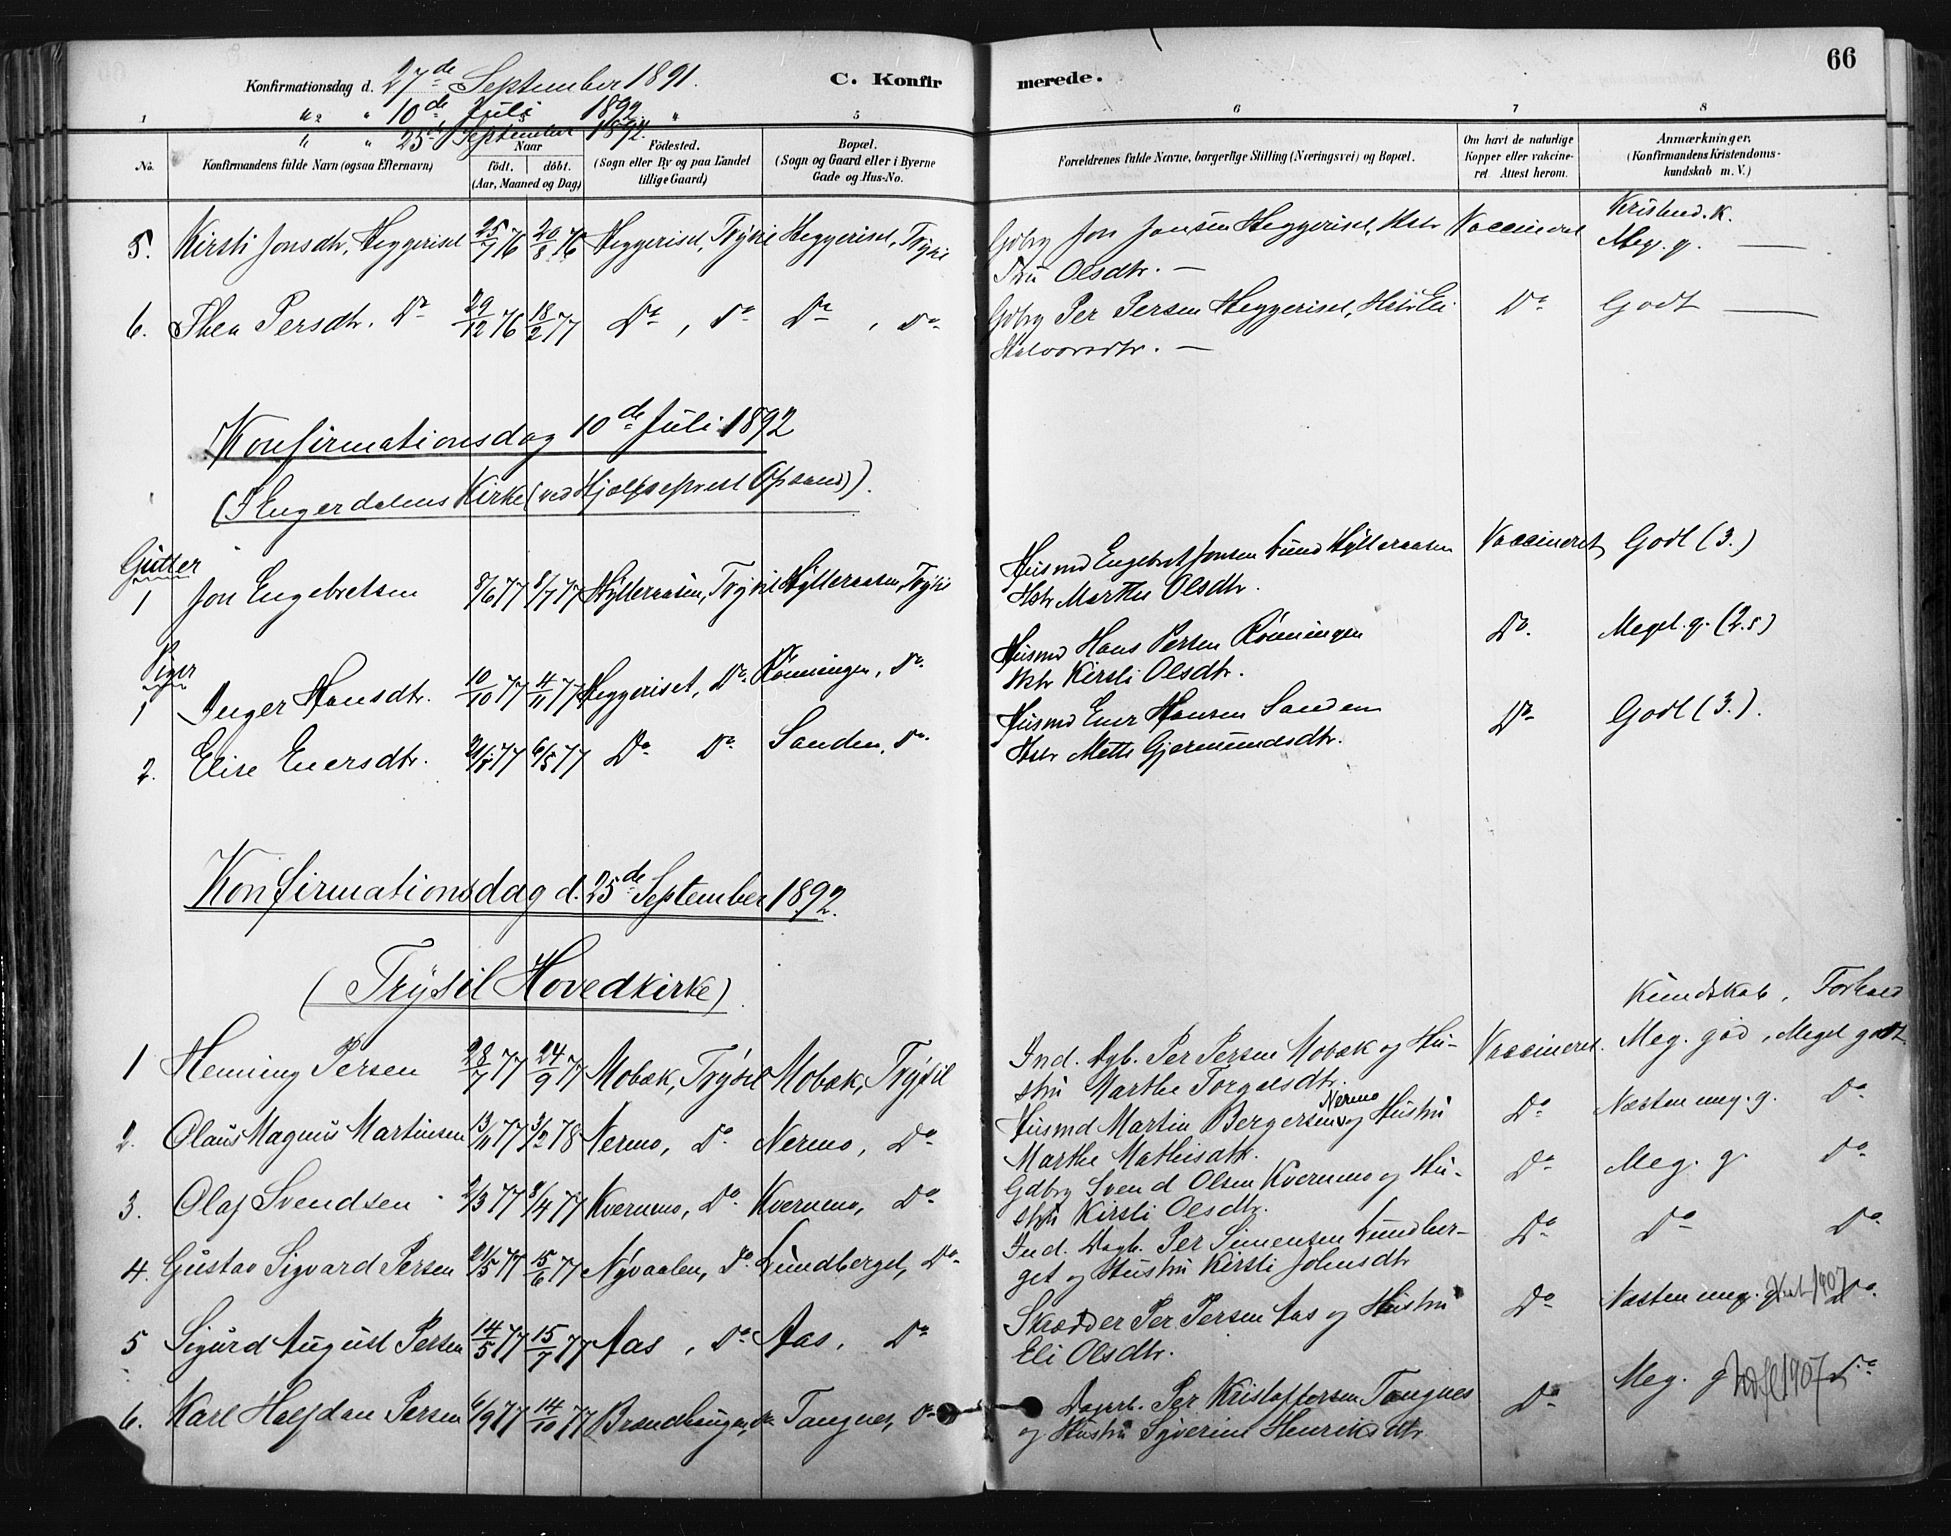 66
Konfirmationsdag d. 27de September 1891. C. Konfirmerede.
" " 10de Juli 1892 "
" " 25de September 1892
1 2 3 5 6 7 8
No. Konfirmandens fulde Navn (ogsaa Efternavn) Naar födt. döbt. (Aar, Maaned og Dag) Födested. (Sogn eller By og paa Landet tillige Gaard) Bopæl. (Sogn og Gaard eller i Byerne Gade og Hus-No. Forældrenes fulde Navne, borgerlige Stilling (Næringsvei) og Bopæl. Om havt de naturlige Kopper eller vakcineret Attest herom. Anmærkninger. (Konfirmandens Kristendomskundskab m. V.)
Kristend. K.
5. Kirsti Jonsdtr. Heggeriset 25/7 76 20/8 76 Heggeriset, Trysil Heggeriset, Trysil Gdbrg Jon Jonsen Heggeriset, Hstr Vaccineret Meg. g. —
Olsdtr. —
6. Thea Persdtr. Do 29/12 76 18/2 77 Do, Do Do, Do Gdbrg Per Persen Heggeriset, Hstr Eli Do Godt —
Halvorsdtr. —
Konfirmationsdag 10de Juli 1892
(I Engerdalens Kirke (ved Hjælpeprest Opsand)).
Gutter
1 Jon Engebretsen 8/6 77 8/7 77 Hylleraasen, Trysil Hylleraasen, Trysil Husmd Engebret Jonsen Sund Hylleraasen Vaccineret Godt (3.)
Hstr Marthe Olsdtr.
Piger
1 Inger Hansdtr. 10/10 77 4/11 77 Heggeriset, Do Rønningen, Do Husmd Hans Persen Rønningen Do. Meget g. (2.5)
Hstr Kirsti Olsdtr.
2. Elise Enersdtr. 6/5 77 Do Do Sanden, Do Husmd Ener Hansen Sanden Do Godt (3.).
Hstr Mette Gjermundsdtr.
Konfirmationsdag d. 25de September 1892.
(Trysil Hovedkirke)
Kundskab, Forhold
1 Henning Persen 28/7 77 24/9 77 Mobæk, Trysil Mobæk, Trysil Ind. Dgb. Per Persen Mobæk og Hu- Vaccineret. Meg. god, Meget godt
stru Marthe Torgalsdtr.
2. Olaus Magnus Martinsen 13/11 77 3/2 78 Nermo, Do Nermo, Do Husmd Martin Bergersen Nermo og Hustru Do Næsten meg. g. Do
Marthe Mathisdtr.
3. Olaf Svendsen 2/3 77 8/4 77 Kvernmo, Do Kvernmo, Do Gdbrg Svend Olsen Kvernmo og Hu- Do Meg. g. Do
stru Kirsti Olsdtr.
4. Gustav Sigvard Persen 21/5 77 15/6 77 Nyvaalen, Do Lundberget, Do Ind. Dagb. Per Simensen Lundber- Do Do Do
get og Hustru Kirsti Johnsdtr
5 Sigurd August Persen 14/5 77 15/7 77 Aas, Do Aas, Do Skrædder Per Persen Aas og Hustru Do Næsten meg. g. 1907 Do.
Eli Olsdtr.
6. Karl Halfdan Persen 6/9 77 14/10 77 Brændhaugen, Do Tangnes, Do Dagarb. Per Kristoffersen Tangnes Do Meg. g. 1907 Do
og Hustru Syverine Henriksdtr